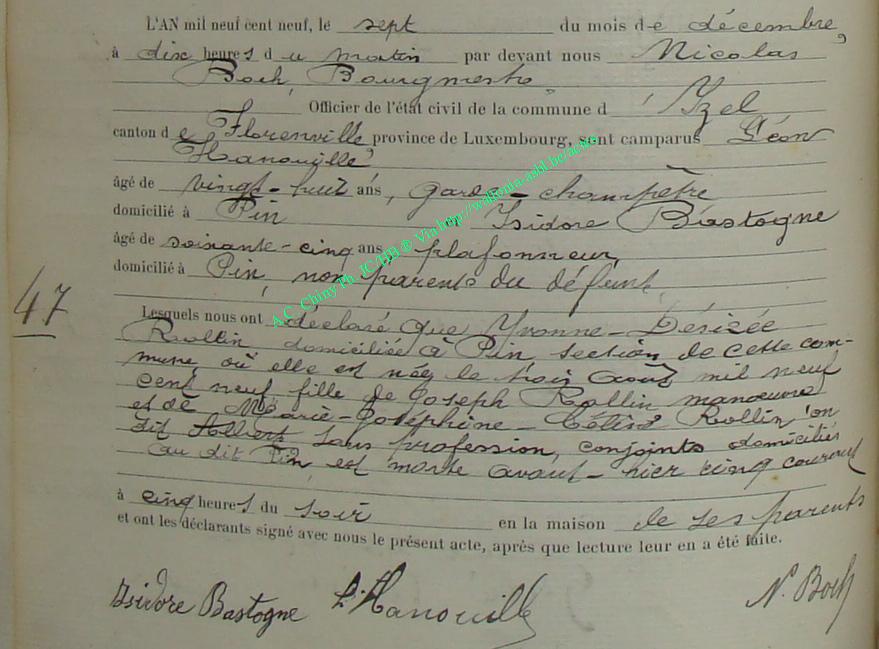 L'AN mil neuf cent neuf, le sept du mois de décembre,
à dix heures du matin par devant nous Nicolas
Boch, Bourgmestre
Officier de l'état civil de la commune d' Izel
canton de Florenville province de Luxembourg, sont comparus Léon
Hanouille
âgé de vingt-huit ans, garde-champêtre
domicilié à Pin Isidore Bastogne
âgé de soixante-cinq ans plafonneur,
domicilié à Pin, non parents du défunt,
47
Lesquels nous ont déclaré que Yvonne-Désirée
Rollin domiciliée à Pin section de cette com-
mune, où elle est née le trois août mil neuf
cent neuf fille de Joseph Rollin manoeuvre
et de Marie-Joséphine Rollin
dit Albert sans profession, conjoints domiciliés
au dit Pin est morte avant-hier cinq courant
à cinq heures du soir en la maison de ses parents
et ont les déclarants signé avec nous le présent acte, après que lecture leur en a été faite.
Isidore Bastogne L. Hanouille N. Boch
A.C. Chiny Ph. JC/BB ® Via http://wallonia-asbl.be/actes